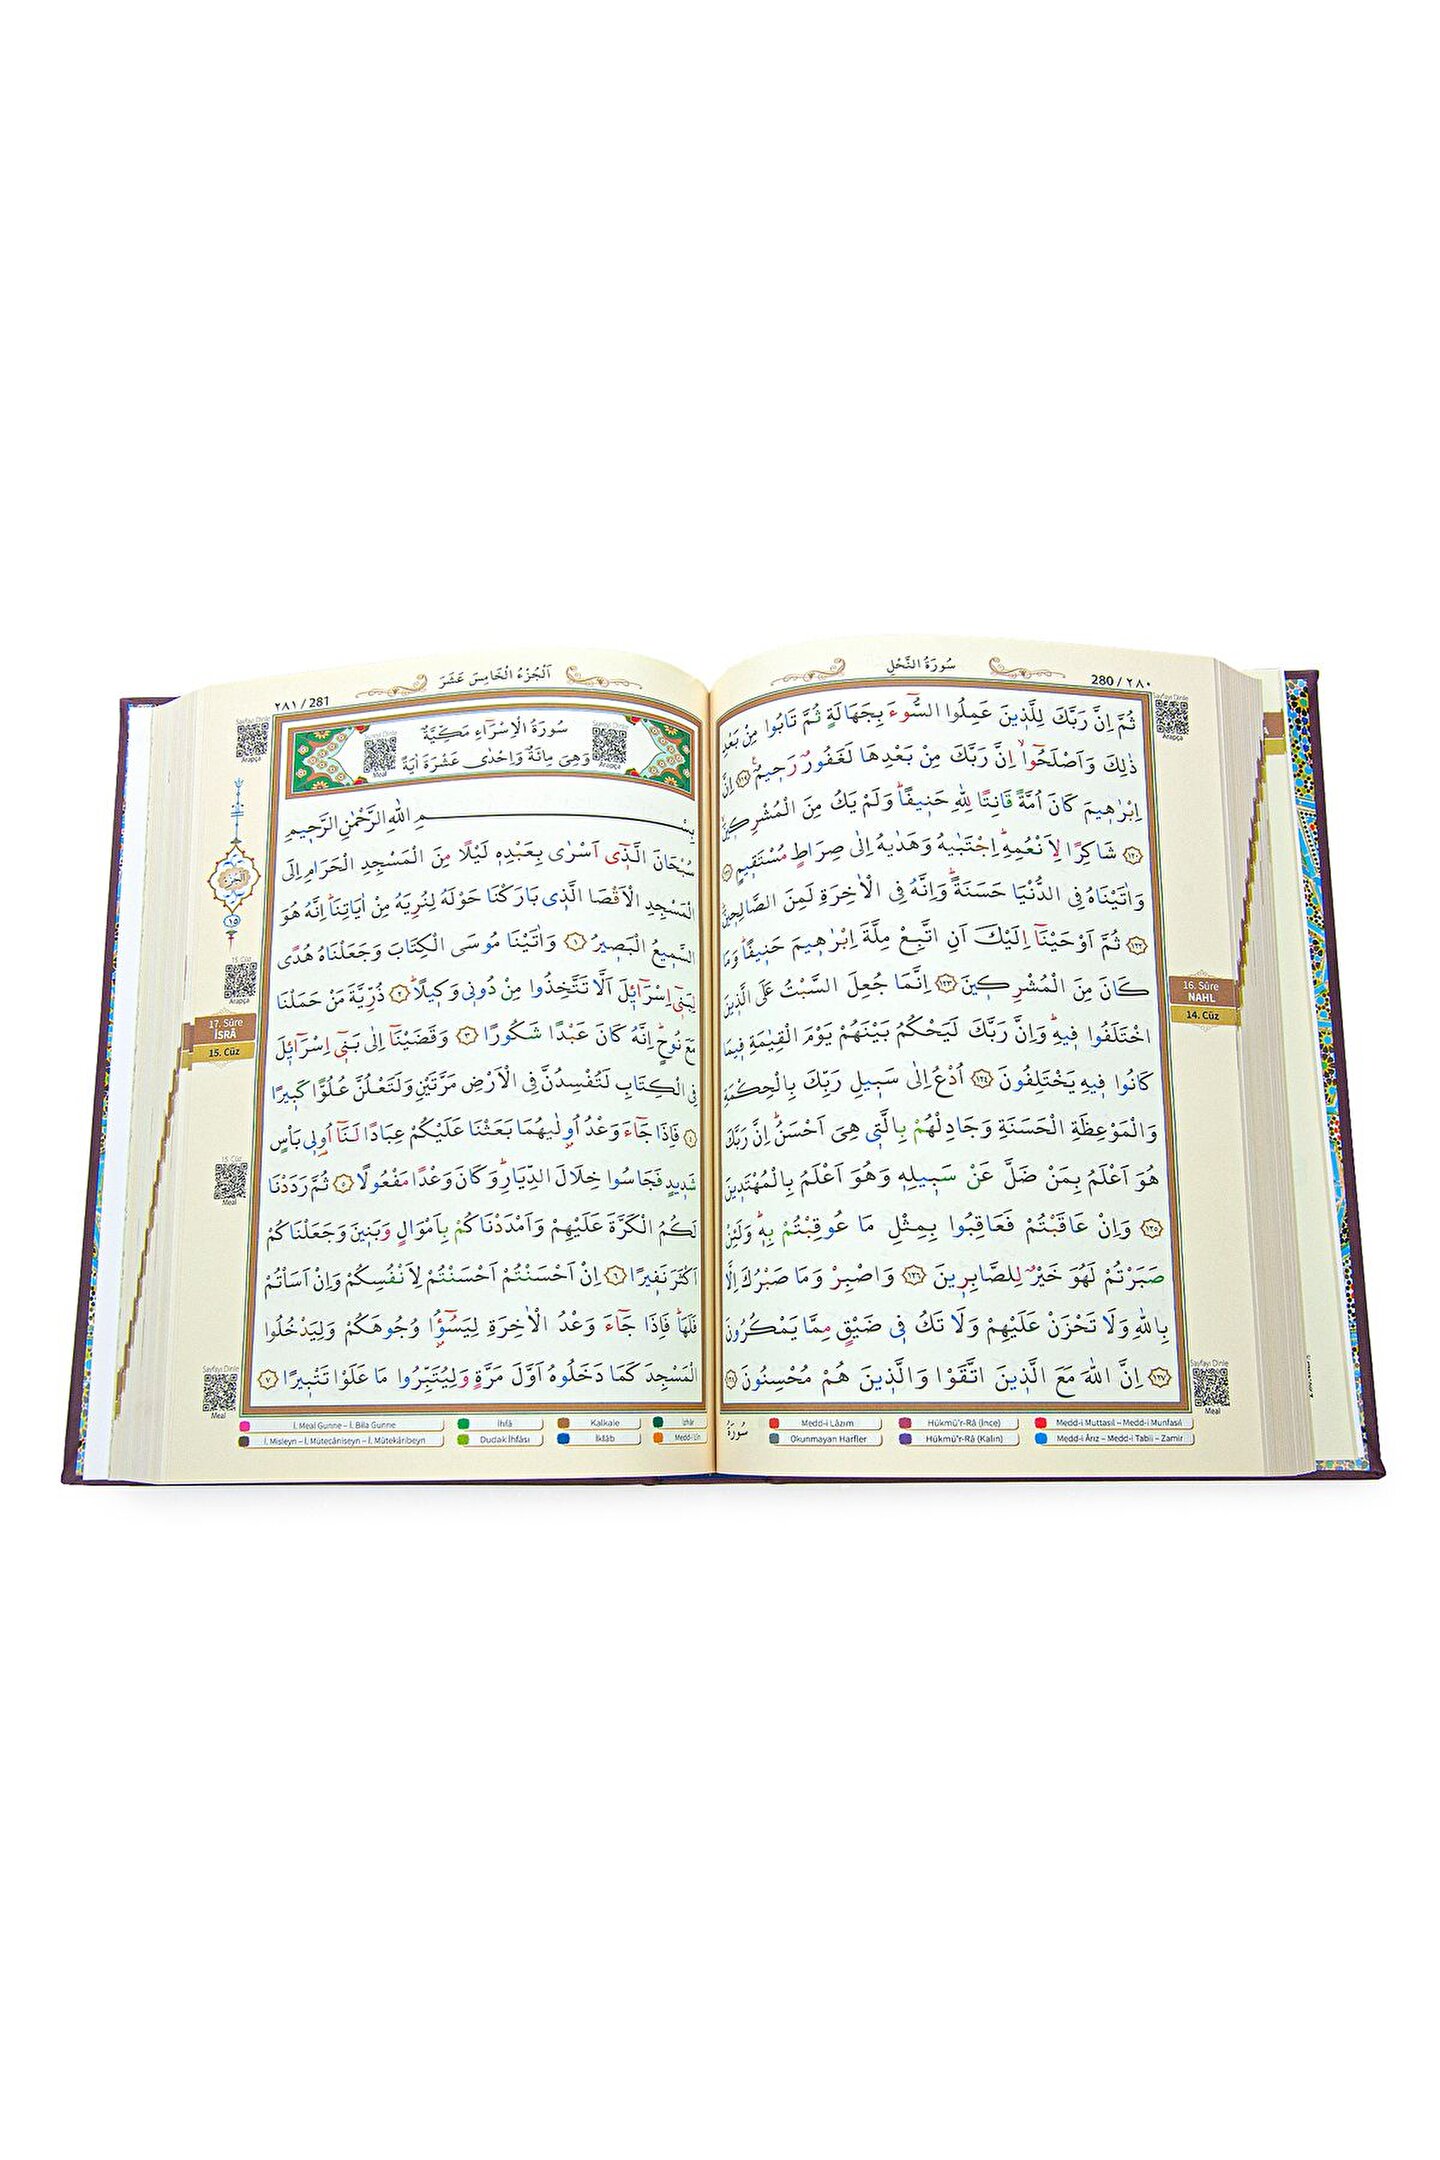 سُورَةُ النَّحْلِ
280 / ٢٨٠
Sayfayı Dinle
Arapça
ثُمَّ اِنَّ رَبَّكَ لِلَّذ۪ينَ عَمِلُوا السُّٓوءَ بِجَهَالَةٍ ثُمَّ تَابُوا مِنْ بَعْدِ
ذٰلِكَ وَاَصْلَحُٓوا اِنَّ رَبَّكَ مِنْ بَعْدِهَا لَغَفُورٌ رَح۪يمٌ ﴿١١٩﴾ اِنَّ
اِبْرٰه۪يمَ كَانَ اُمَّةً قَانِتًا لِلّٰهِ حَن۪يفًا وَلَمْ يَكُ مِنَ الْمُشْرِك۪ينَ
﴿١٢٠﴾ شَاكِرًا لِاَنْعُمِهِ اِجْتَبٰيهُ وَهَدٰيهُ اِلٰى صِرَاطٍ مُسْتَق۪يمٍ ﴿١٢١﴾
وَاٰتَيْنَاهُ فِي الدُّنْيَا حَسَنَةً وَاِنَّهُ فِي الْاٰخِرَةِ لَمِنَ الصَّالِح۪ينَ
﴿١٢٢﴾ ثُمَّ اَوْحَيْنَٓا اِلَيْكَ اَنِ اتَّبِعْ مِلَّةَ اِبْرٰه۪يمَ حَن۪يفًا وَمَا
كَانَ مِنَ الْمُشْرِك۪ينَ ﴿١٢٣﴾ اِنَّمَا جُعِلَ السَّبْتُ عَلَى الَّذ۪ينَ
اخْتَلَفُوا ف۪يهِ وَاِنَّ رَبَّكَ لَيَحْكُمُ بَيْنَهُمْ يَوْمَ الْقِيٰمَةِ ف۪يمَا
كَانُوا ف۪يهِ يَخْتَلِفُونَ ﴿١٢٤﴾ اُدْعُ اِلٰى سَب۪يلِ رَبِّكَ بِالْحِكْمَةِ
وَالْمَوْعِظَةِ الْحَسَنَةِ وَجَادِلْهُمْ بِالَّت۪ي هِيَ اَحْسَنُ اِنَّ رَبَّكَ
هُوَ اَعْلَمُ بِمَنْ ضَلَّ عَنْ سَب۪يلِه۪ وَهُوَ اَعْلَمُ بِالْمُهْتَد۪ينَ
﴿١٢٥﴾ وَاِنْ عَاقَبْتُمْ فَعَاقِبُوا بِمِثْلِ مَا عُوقِبْتُمْ بِه۪ وَلَئِنْ
صَبَرْتُمْ لَهُوَ خَيْرٌ لِلصَّابِر۪ينَ ﴿١٢٦﴾ وَاصْبِرْ وَمَا صَبْرُكَ اِلَّا
بِاللّٰهِ وَلَا تَحْزَنْ عَلَيْهِمْ وَلَا تَكُ ف۪ي ضَيْقٍ مِمَّا يَمْكُرُونَ
﴿١٢٧﴾ اِنَّ اللّٰهَ مَعَ الَّذ۪ينَ اتَّقَوْا وَالَّذ۪ينَ هُمْ مُحْسِنُونَ ﴿١٢٨﴾
16. Sûre
NAHL
14. Cüz
Sayfayı Dinle
Meal
سُورَةُ
Medd-i Lâzım
Hükmü'r-Râ (İnce)
Medd-i Muttasıl – Medd-i Munfasıl
Okunmayan Harfler
Hükmü'r-Râ (Kalın)
Medd-i Ârız – Medd-i Tabii – Zamir
اَلْجُزْءُ الْخَامِسَ عَشَرَ
٢٨١ / 281
Sayfayı Dinle
Arapça
سُورَةُ الْاِسْرَٓاءِ مَكِّيَّةٌ
وَهِيَ مِائَةٌ وَاِحْدٰى عَشْرَةَ اٰيَةً
Meal
Arapça
بِسْمِ اللّٰهِ الرَّحْمٰنِ الرَّح۪يمِ
سُبْحَانَ الَّذ۪ٓي اَسْرٰى بِعَبْدِه۪ لَيْلًا مِنَ الْمَسْجِدِ الْحَرَامِ اِلَى
الْمَسْجِدِ الْاَقْصَا الَّذ۪ي بَارَكْنَا حَوْلَهُ لِنُرِيَهُ مِنْ اٰيَاتِنَا اِنَّهُ هُوَ
السَّم۪يعُ الْبَص۪يرُ ﴿١﴾ وَاٰتَيْنَا مُوسَى الْكِتَابَ وَجَعَلْنَاهُ هُدًى
لِبَن۪ٓي اِسْرَٓائ۪يلَ اَلَّا تَتَّخِذُوا مِنْ دُون۪ي وَك۪يلًا ﴿٢﴾ ذُرِّيَّةَ مَنْ حَمَلْنَا
مَعَ نُوحٍ اِنَّهُ كَانَ عَبْدًا شَكُورًا ﴿٣﴾ وَقَضَيْنَٓا اِلٰى بَن۪ٓي اِسْرَٓائ۪يلَ
فِي الْكِتَابِ لَتُفْسِدُنَّ فِي الْاَرْضِ مَرَّتَيْنِ وَلَتَعْلُنَّ عُلُوًّا كَب۪يرًا
﴿٤﴾ فَاِذَا جَٓاءَ وَعْدُ اُو۫لٰيهُمَا بَعَثْنَا عَلَيْكُمْ عِبَادًا لَنَٓا اُو۬ل۪ي بَأْسٍ
شَد۪يدٍ فَجَاسُوا خِلَالَ الدِّيَارِ وَكَانَ وَعْدًا مَفْعُولًا ﴿٥﴾ ثُمَّ رَدَدْنَا
لَكُمُ الْكَرَّةَ عَلَيْهِمْ وَاَمْدَدْنَاكُمْ بِاَمْوَالٍ وَبَن۪ينَ وَجَعَلْنَاكُمْ
اَكْثَرَ نَف۪يرًا ﴿٦﴾ اِنْ اَحْسَنْتُمْ اَحْسَنْتُمْ لِاَنْفُسِكُمْ وَاِنْ اَسَأْتُمْ
فَلَهَا فَاِذَا جَٓاءَ وَعْدُ الْاٰخِرَةِ لِيَسُٓؤُ۫ا وُجُوهَكُمْ وَلِيَدْخُلُوا
الْمَسْجِدَ كَمَا دَخَلُوهُ اَوَّلَ مَرَّةٍ وَلِيُتَبِّرُوا مَا عَلَوْا تَتْب۪يرًا ﴿٧﴾
الجزء
١٥
15. Cüz
Arapça
17. Sûre
İSRÂ
15. Cüz
15. Cüz
Meal
Sayfayı Dinle
Meal
İ. Meal Gunne – İ. Bila Gunne
İhfâ
Kalkale
İzhâr
İ. Misleyn – İ. Mütecâniseyn – İ. Mütekâribeyn
Dudak İhfâsı
İklâb
Medd-i Lîn